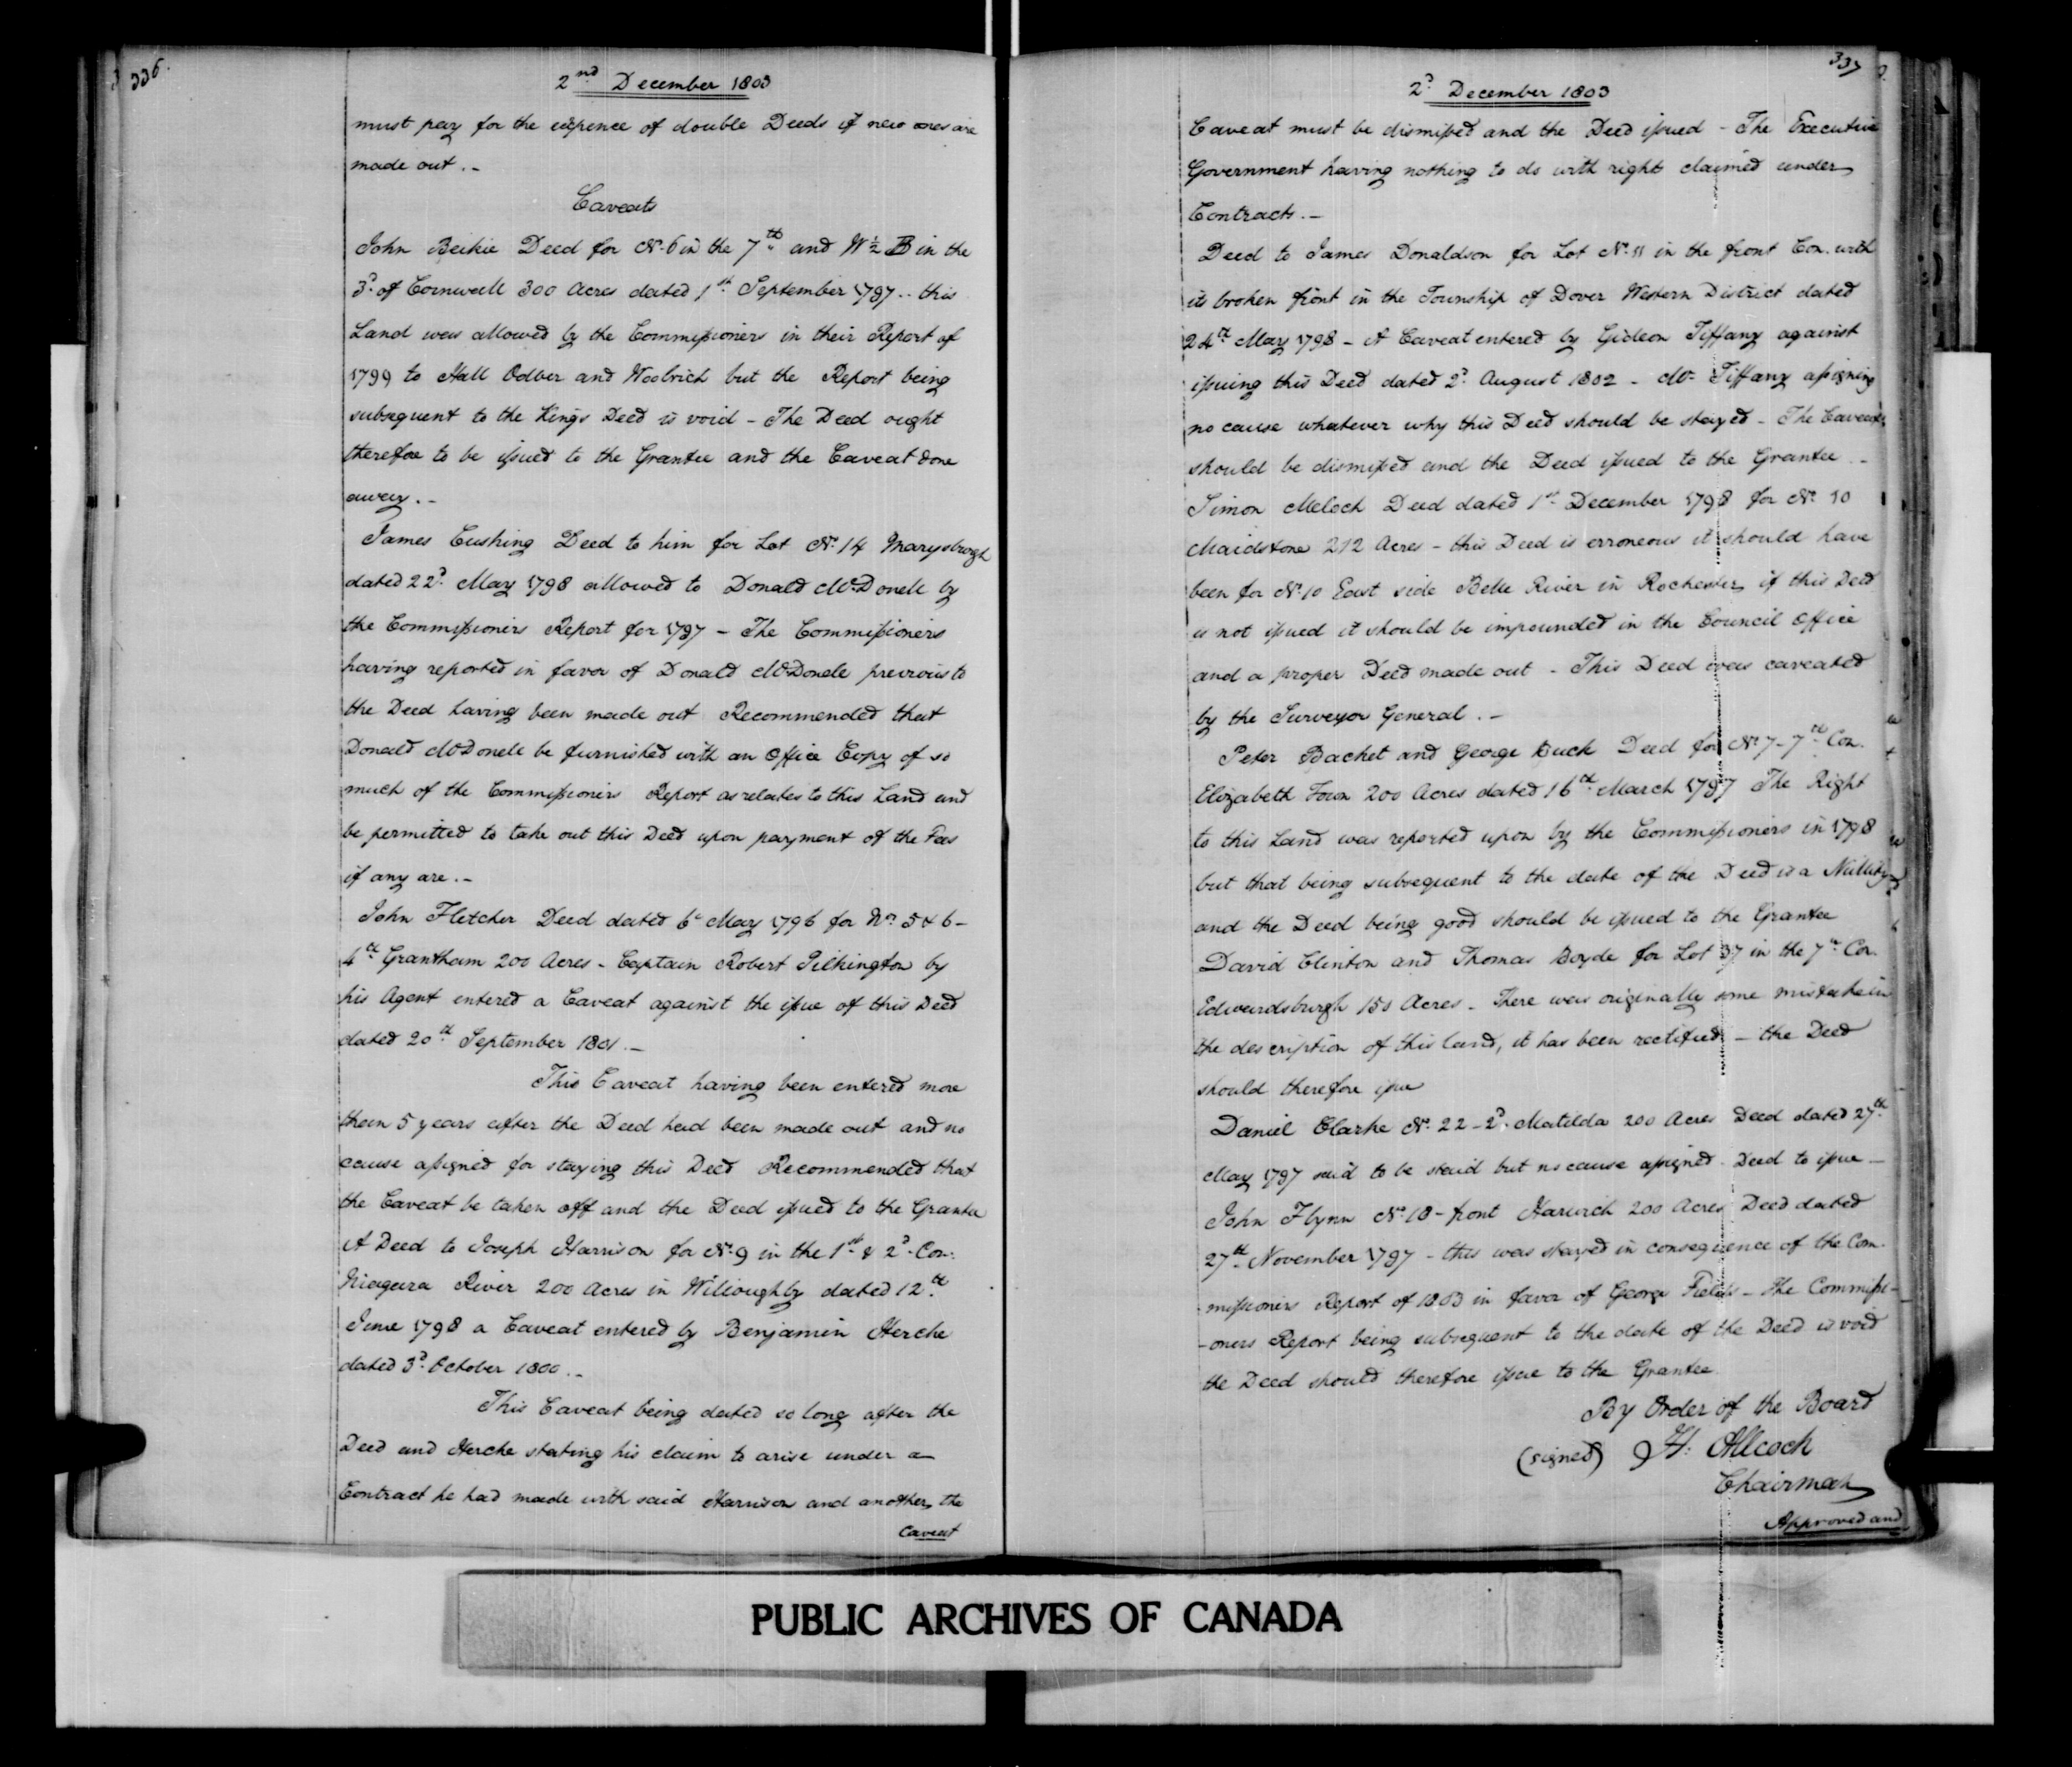 336.
2nd December 1803
must pay for the expence of double Deeds if new ones are
made out. -
Caveats
John Beikie Deed for No. 6 in the 7th and W ½ B in the
3d. of Cornwall 300 Acres dated 1st September 1797 - this
Land was allowed by the Commissioners in their Report of
1799 to Hall Odber and Woolrich but the Report being
subsequent to the Kings Deed is void - The Deed ought
therefore to be issued to the Grantee and the Caveat done
away. -
James Cushing Deed to him for Lot No. 14 Marysburgh
dated 22d. May 1798 allowed to Donald McDonell by
the Commissioners Report for 1797 - The Commissioners
having reported in favor of Donald McDonele previous to
the Deed having been made out Recommended that
Donald McDonell be furnished with an Office Copy of so
much of the Commissioners Report as relates to this Land and
be permitted to take out this Deed upon payment of the Fees
if any are. -
John Fletcher Deed dated 6th May 1796 for Nos. 5 & 6 -
4th Grantham 200 Acres - Captain Robert Pilkington by
his Agent entered a Caveat against the issue of this Deed
dated 20th September 1801. -
This Caveat having been entered more
than 5 years after the Deed had been made out and no
cause assigned for staying this Deed Recommended that
the Caveat be taken off and the Deed issued to the Grantee
A Deed to Joseph Harrison for No. 9 in the 1st & 2d. Con:
Niagara River 200 Acres in Willoughby dated 12th
June 1798 a Caveat entered by Benjamin Herche
dated 3d. October 1800. -
This Caveat being dated so long after the
Deed and Herche stating his claim to arise under a
Contract he had made with said Harrison and another, the
Caveat
337
2d. December 1803
Caveat must be dismissed and the Deed issued - The Executive
Government having nothing to do with right claimed under
Contracts. -
Deed to James Donaldson for Lot No. 11 in the front Con. with
its broken front in the Township of Dover Western District dated
24th May 1798 - A Caveat entered by Gideon Tiffany against
issuing this Deed dated 2d. August 1802 - Mr. Tiffany assigning
no cause whatever why this Deed should be stayed - The Caveat
should be dismissed and the Deed issued to the Grantee -
Simon Meloch Deed dated 1st December 1798 for No. 10
Maidstone 212 Acres - this Deed is erroneous it should have
been for No. 10 East side Belle River in Rochester, if this Deed
is not issued it should be impounded in the Council Office
and a proper Deed made out - This Deed was caveated
by the Surveyor General. -
Peter Bachet and George Buck Deed for No. 7 - 7th Con.
Elizabeth Town 200 Acres dated 16th March 1797 The Right
to this Land was reported upon by the Commissioners in 1798
but that being subsequent to the date of the Deed is a Nullity
and the Deed being good should be issued to the Grantee
David Clinton and Thomas Boyde for Lot 37 in the 7th Con.
Edwardsburgh 150 Acres - There was originally some mistake in
the description of this land, it has been rectified - the Deed
should therefore issue
Daniel Clarke No. 22 - 2d. Matilda 200 Acres Deed dated 27th
May 1797 said to be staid but no cause assigned Deed to issue -
John Flynn No. 18 - front Harwich 200 Acres Deed dated
27th November 1797 - this was stayed in consequence of the Com-
missioners Report of 1803 in favor of George Fields - The Commissi-
-oners Report being subsequent to the date of the Deed is void
the Deed should therefore issue to the Grantee
By Order of the Board
(signed) H: Allcock
Chairman
Approved and
PUBLIC ARCHIVES OF CANADA